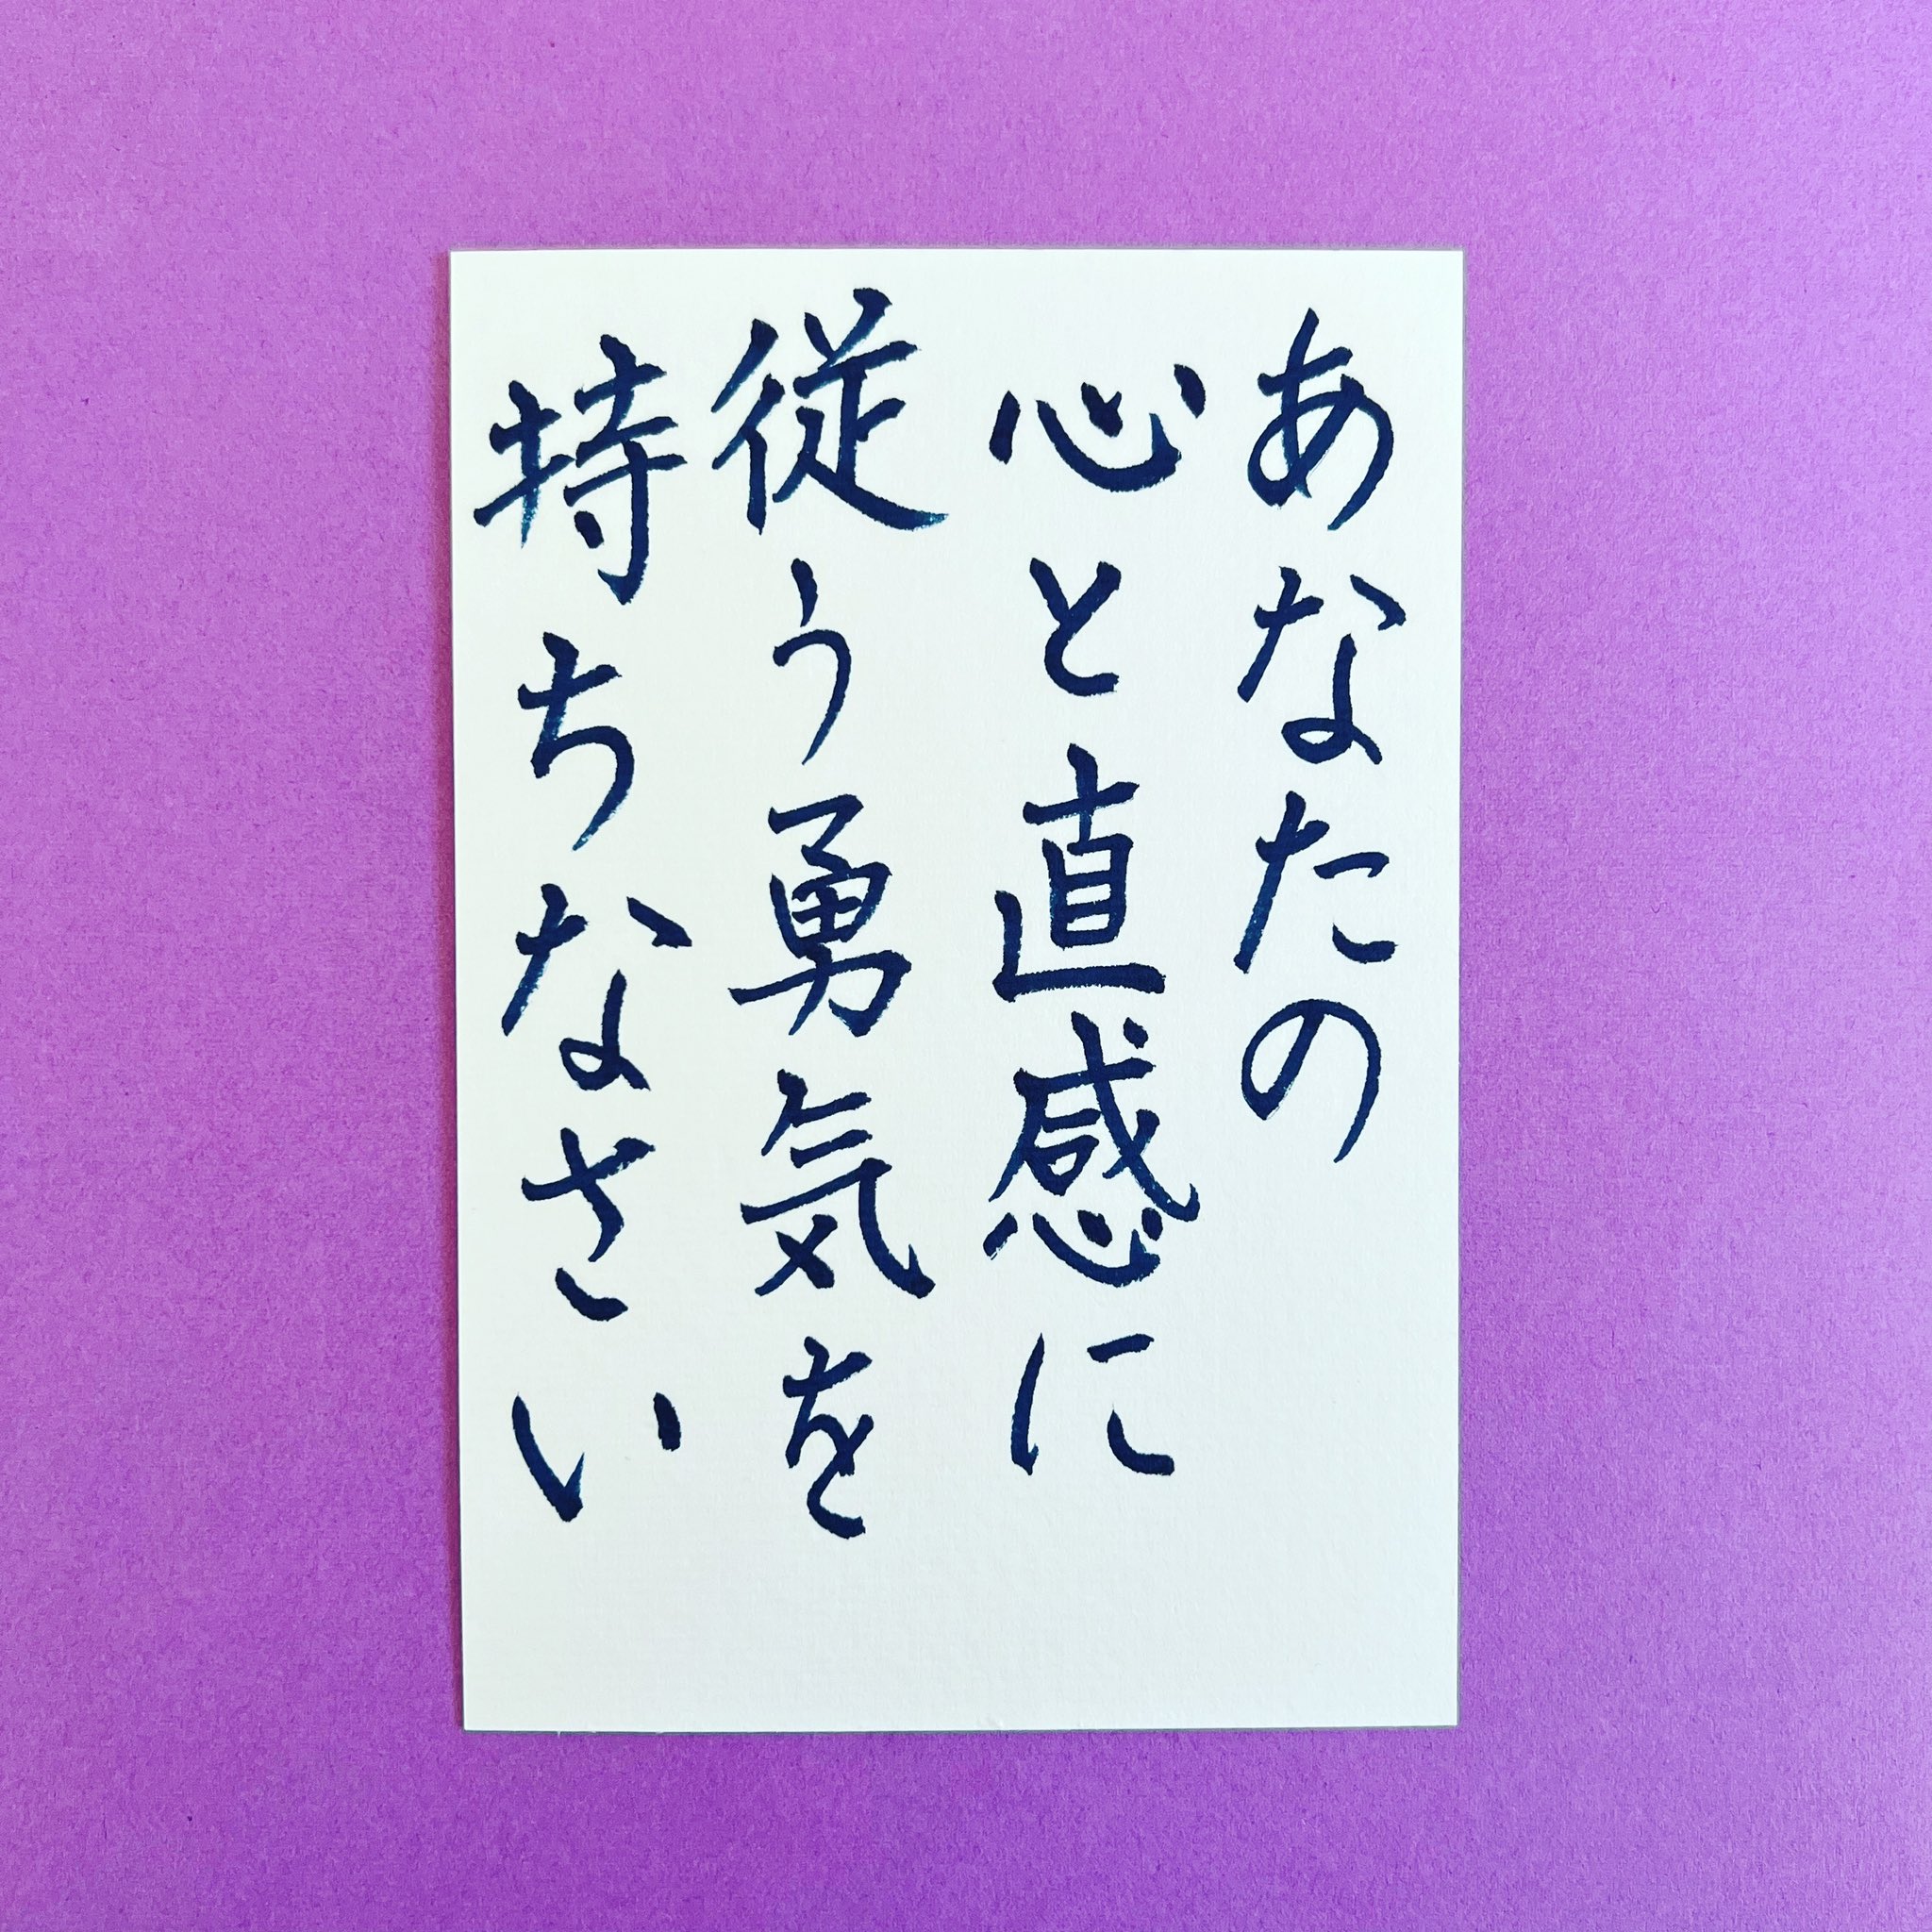 あなたの
心と直感に
従う勇気を
持ちなさい